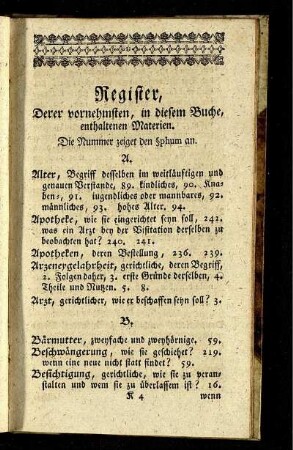 Register,
Derer vornehmsten, in diesem Buche,
enthaltenen Materien.
Die Nummer zeiget den §phum an.
A.
Alter, Begriff desselben im weitläuftigen und
genauen Verstande, 89. kindliches, 90. Kna-
ben-, 91. iugendliches oder mannbares, 92.
männliches, 93. hohes Alter. 94.
Apotheke, wie sie eingerichtet seyn soll, 242.
was ein Arzt bey der Visitation derselben zu
beobachten hat? 240. 241.
Apotheken, deren Bestellung, 236. 239.
Arzeneygelahrheit, gerichtliche, deren Begriff,
2. Folgen daher, 3. erste Gründe derselben, 4.
Theile und Nutzen. 5. 8.
Arzt, gerichtlicher, wie er beschaffen seyn soll? 3.
B.
Bärmutter, zweyfache und zweyhörnige. 59.
Beschwängerung, wie sie geschiehet? 219.
wenn eine neue nicht statt findet? 59.
Besichtigung, gerichtliche, wie sie zu veran-
stalten und wem sie zu überlassen ist? 16.
K 4 wenn